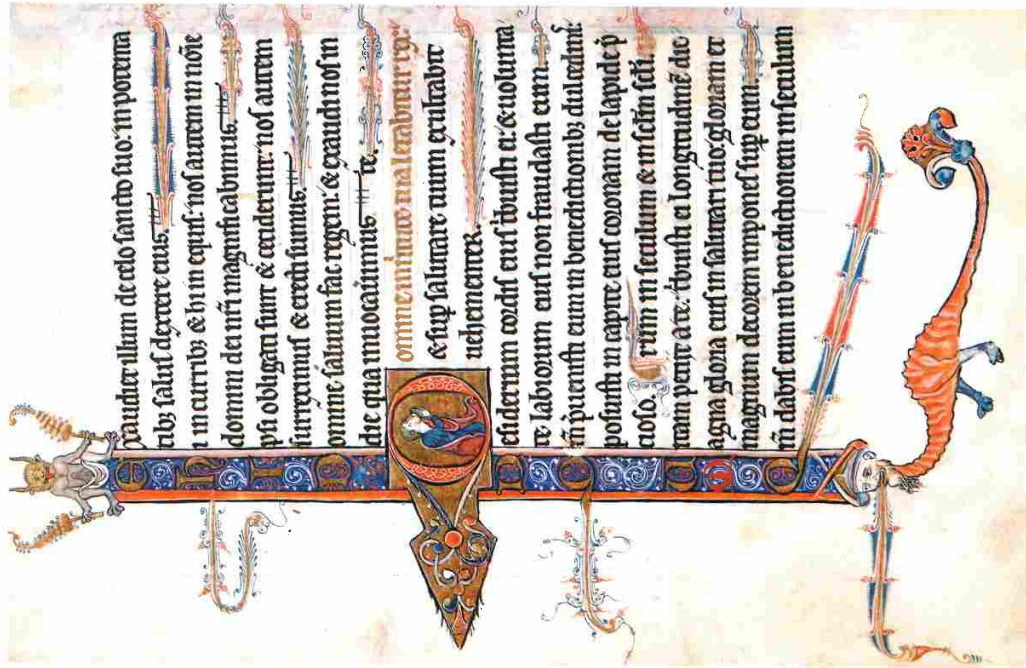 exaudiet illum de celo sancto suo: in potenta
tib; salus dextere eius.
hi in currib; & hi in equis: nos autem in nōie
domini dei nr̄i magnificabimus.
Ipsi obligati sunt & ceciderunt: nos autem
surreximus & erecti sumus.
Domine saluum fac regem: & exaudi nos in
die qua inuocauimus te.
Domine in uirtute tua letabitur rex:
& sup salutare tuum exultabit
uehementer.
Desiderium cordis eius tribuisti ei: & uolunta
te labiorum eius non fraudasti eum.
Qm̄ preuenisti eum in benedictionib; dulcedinis:
posuisti in capite eius coronam de lapide p
cioso.
Vitam petiit a te: tribuisti ei longitudinē die
rum in seculum & in sclm̄ scl̄i.
Magna gloria eius in salutari tuo: gloriam et
magnum decorem impones sup eum.
Qm̄ dabis eum in benedictionem in seculum